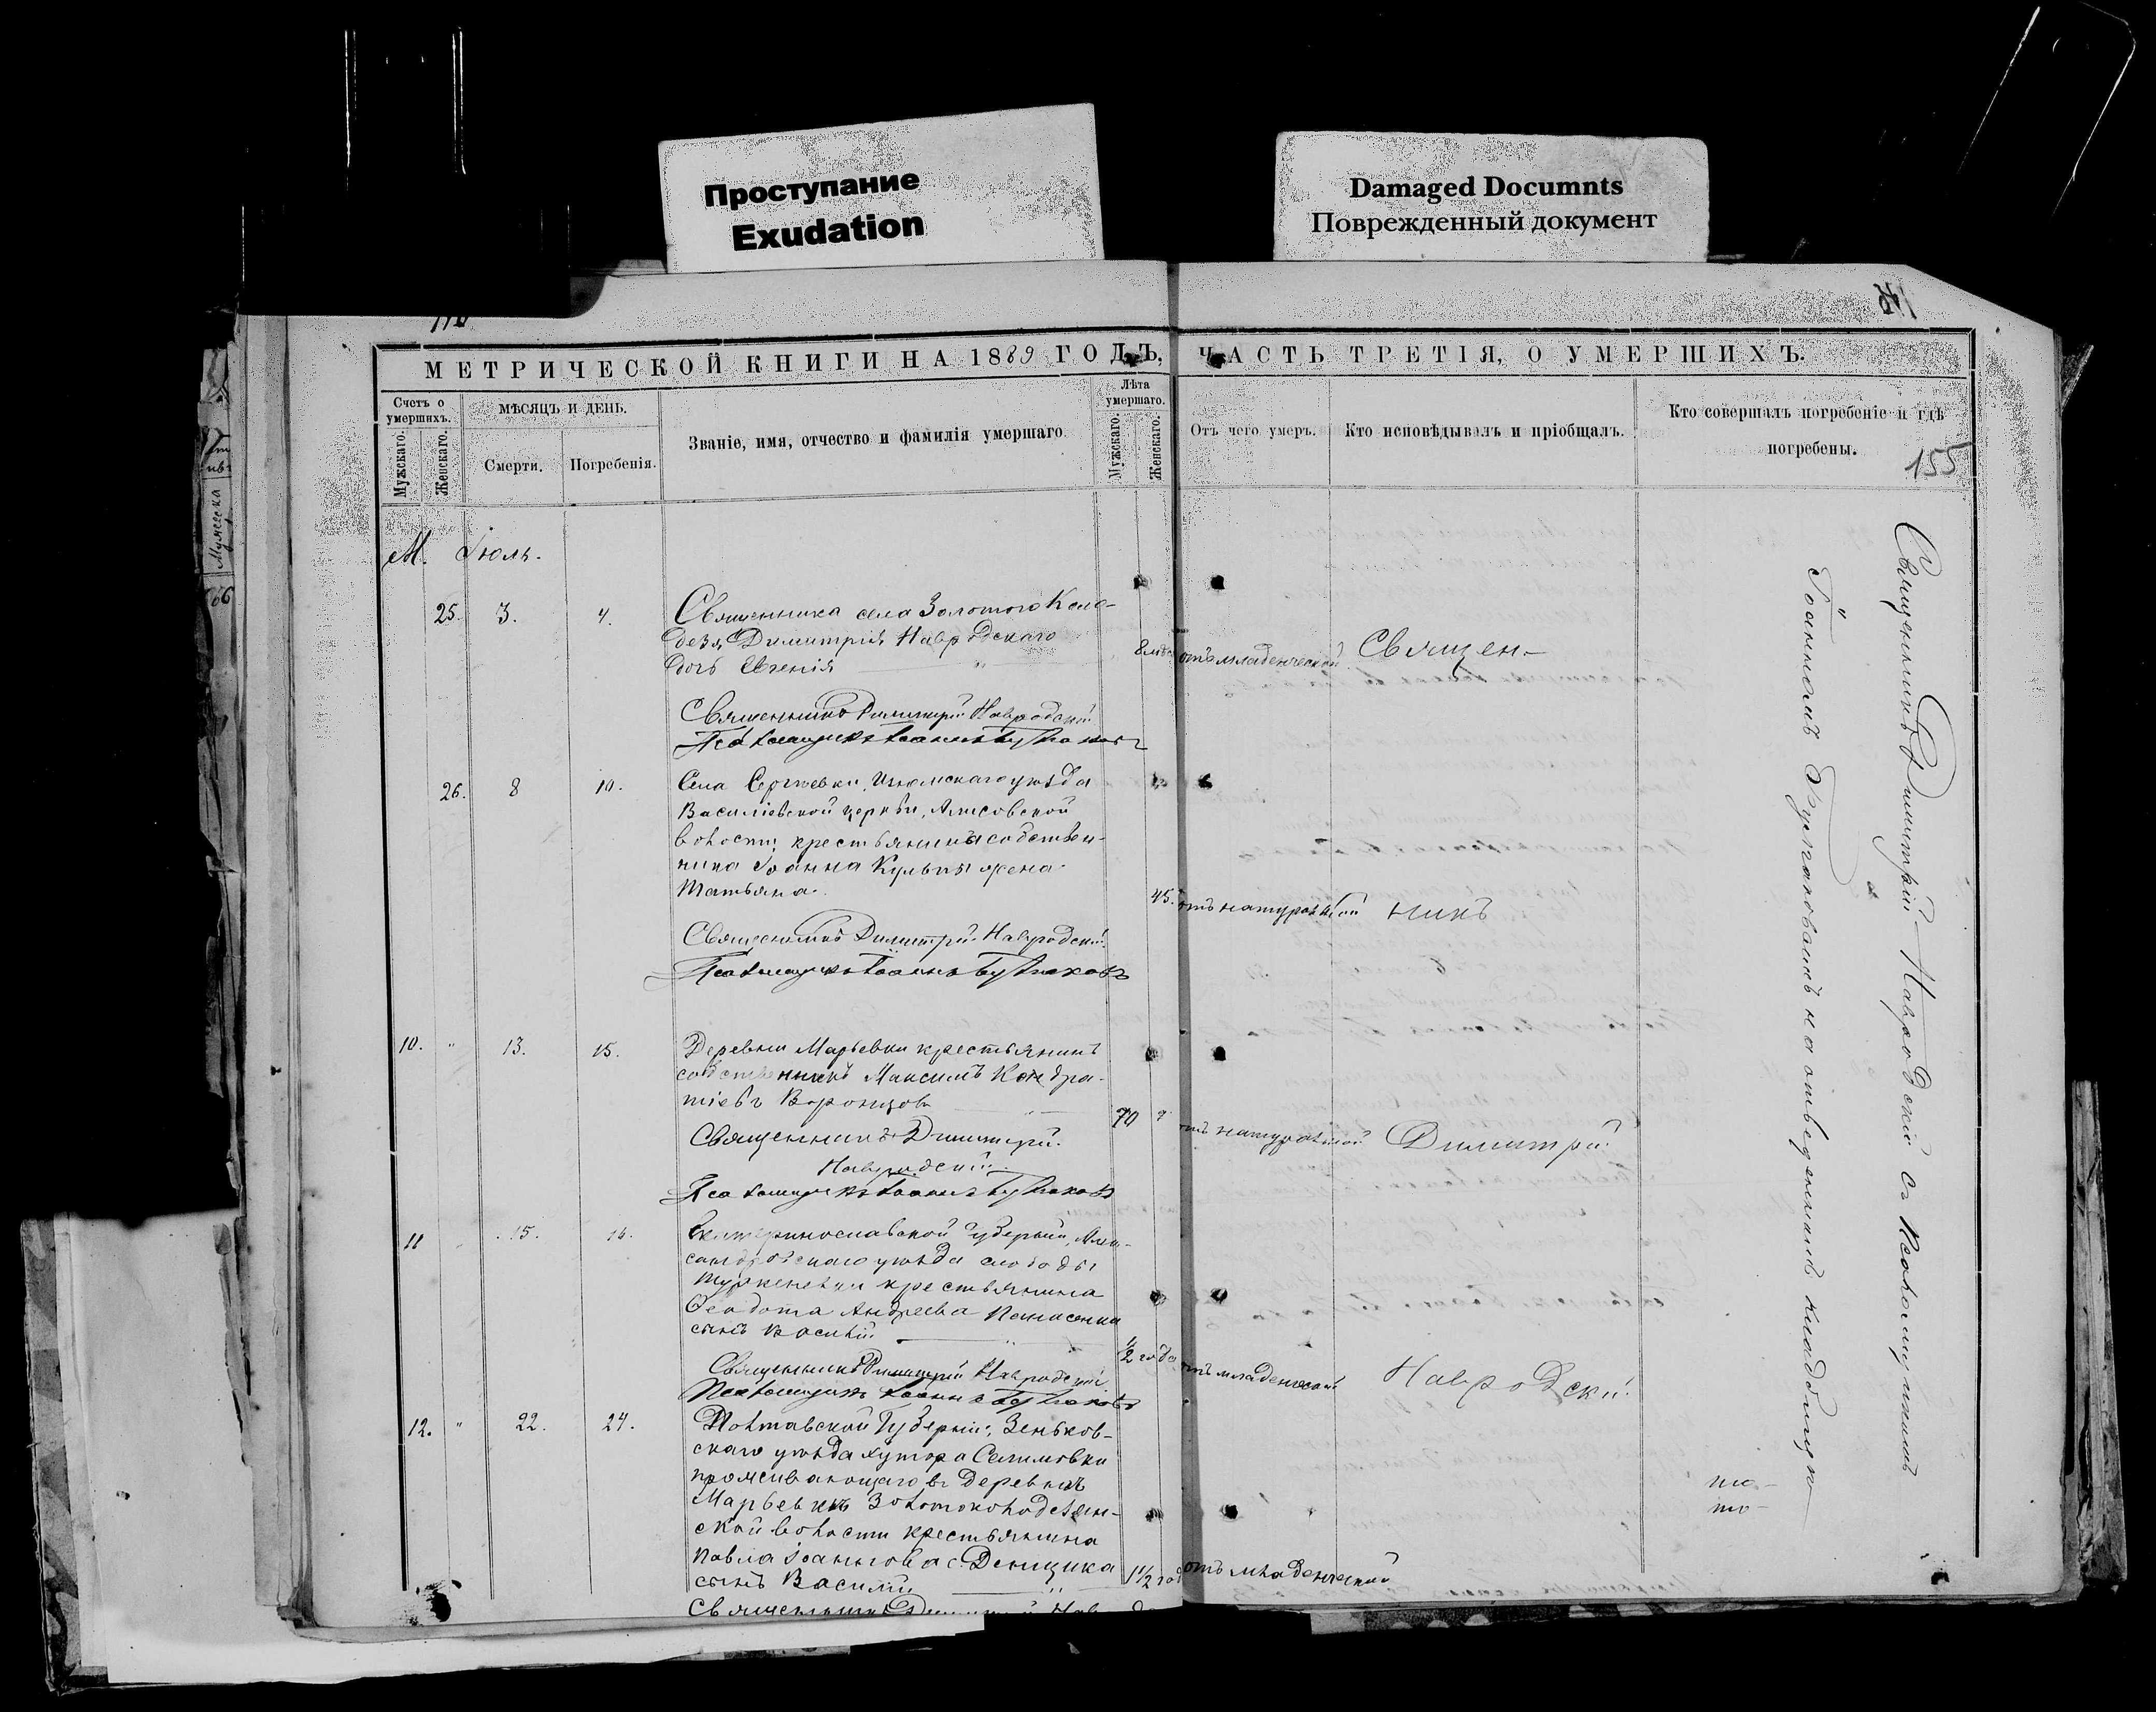 Проступание
Exudation
Damaged Documnts
Поврежденный документ
МЕТРИЧЕСКОЙ КНИГИ НА 1889 ГОДЪ, ЧАСТЬ ТРЕТІЯ, О УМЕРШИХЪ.
Счетъ о умершихъ.
Мужскаго.
Женскаго.
МѢСЯЦЪ И ДЕНЬ.
Смерти.
Погребенія.
Званіе, имя, отчество и фамилія умершаго
Лѣта умершаго.
Мужскаго.
Женскаго.
Отъ чего умеръ.
Кто исповѣдывалъ и пріобщалъ.
Кто совершалъ погребеніе и гдѣ
погребены.
155
М. Іюль.
25. 3. 4.
Священника села Золотого Коло-
дезя, Димитрія Навродскаго
дочь Евгенія
отъ младенческой
Священ-
Священникъ Димитрій Навродскій
Псаломщикъ Іоаннъ
26. 8 10.
Села Сергѣевки, Изюмскаго уѣзда
Василіевской церкви,
волости, крестьянина собствен-
ника Іоанна жена
Татьяна.
45. отъ натуральной
никъ
Священникъ Димитрій Навродскій
Псаломщикъ Іоаннъ
10. " 13. 15.
Деревни Марьевки крестьянинъ
собственникъ Максимъ Кондра-
тіевъ Воронцовъ
70 отъ натуральной
Димитрій
Священникъ Димитрій
Навродскій
Псаломщикъ Іоаннъ
11 15. 16.
Екатеринославской Губерніи, Алек-
сандровскаго уѣзда слободы
Туркеневки крестьянина
Ѳеодота Андреева
сынъ Василій
1/2 года отъ младенческой
Навродскій
Священникъ Димитрій Навродскій
Псаломщикъ Іоаннъ
12. " 22. 24.
Полтавской Губерніи, Зеньков-
скаго уѣзда хутора
проживающаго въ деревнѣ
Марьевкѣ Золотоколодезян-
ской волости крестьянина
Павла Іоаннова с. Денщика
сынъ Василій
1 1/2 год отъ младенческой
Священникъ Димитрій
Священникъ Димитрій Навродскій съ Псаломщикомъ
Іоанномъ на отведенномъ кладбищѣ